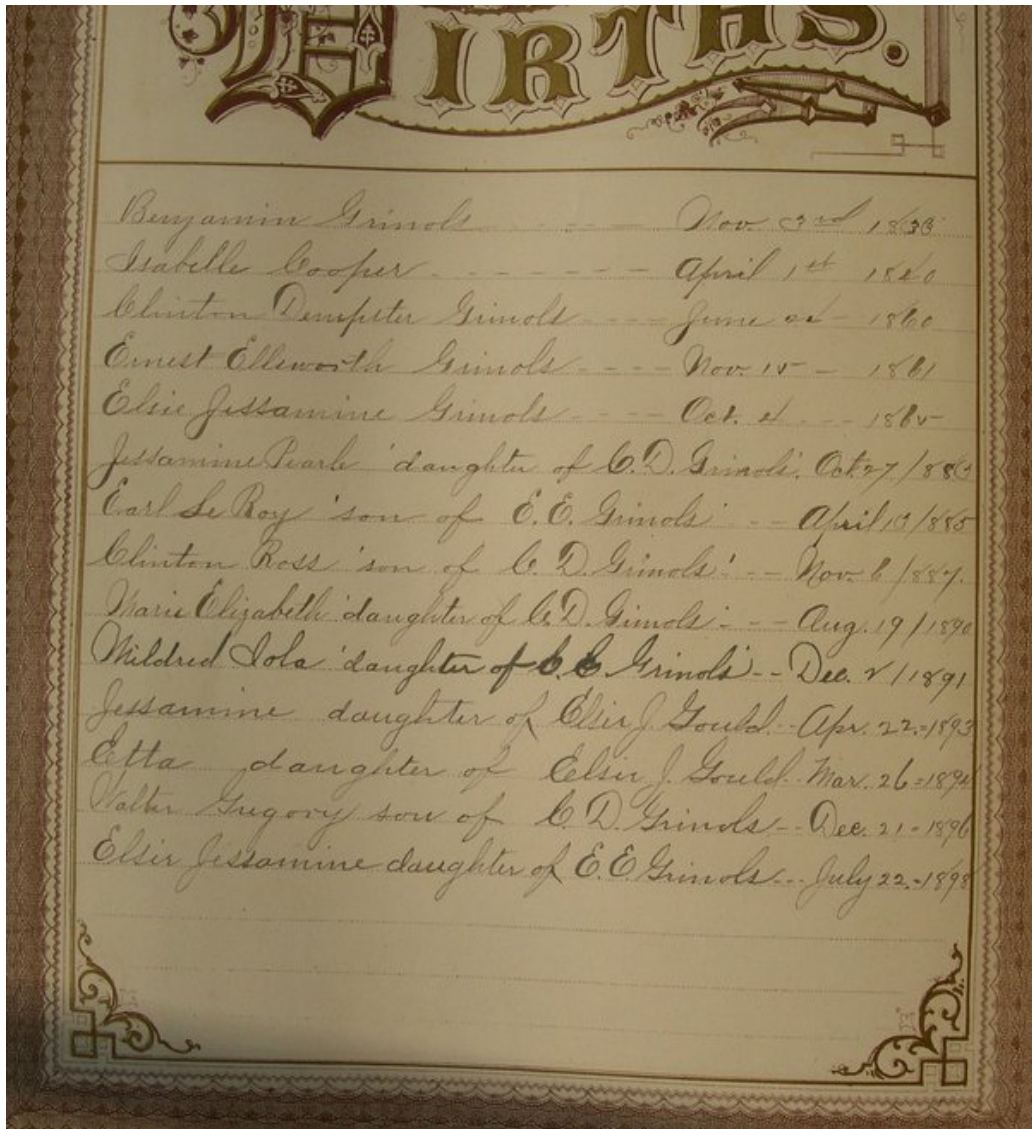 BIRTHS.
Benjamin Grinols - - - - Nov. 3rd 1833
Isabelle Cooper - - - - - - - April 1st 1840
Clinton Dempster Grinols - - - - June - 1860
Ernest Ellsworth Grinols - - - - Nov. 15 - 1861
Elsie Jessamine Grinols - - - - Oct. 4 - - - 1865
Jessamine Pearle 'daughter of C. D. Grinols'. Oct 27 / 1883
Earl Le Roy 'son of E. E. Grinols' - - April 13 / 1885
Clinton Ross 'son of C. D. Grinols' - - Nov. 6 / 1887.
Marie Elizabeth 'daughter of C. D. Grinols - - - Aug. 19 / 1890
Mildred Iola 'daughter of Grinols' - - Dec. 2 / 1891
Jessamine daughter of Elsie J. Gould - - Apr. 22. = 1893
Etta daughter of Elsie J. Gould - Mar. 26 = 1894
Walter Gregory son of C. D. Grinols - - Dec. 21 - 1896
Elsie Jessamine daughter of E. E. Grinols - - - July 22. - 1898